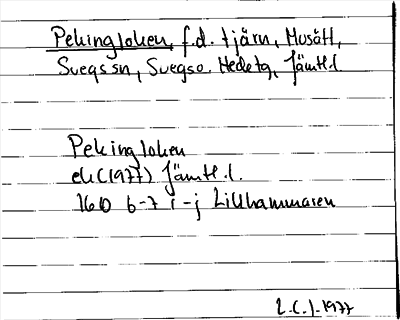 Pekingloken, f.d. tjärn, Mosätt,
Svegs sn, Svegs o. Hede tg, Jämtl. l.
Pekingloken
ek (1977) Jämtl. l.
16D 6-7 i-j Lillhammaren
1977